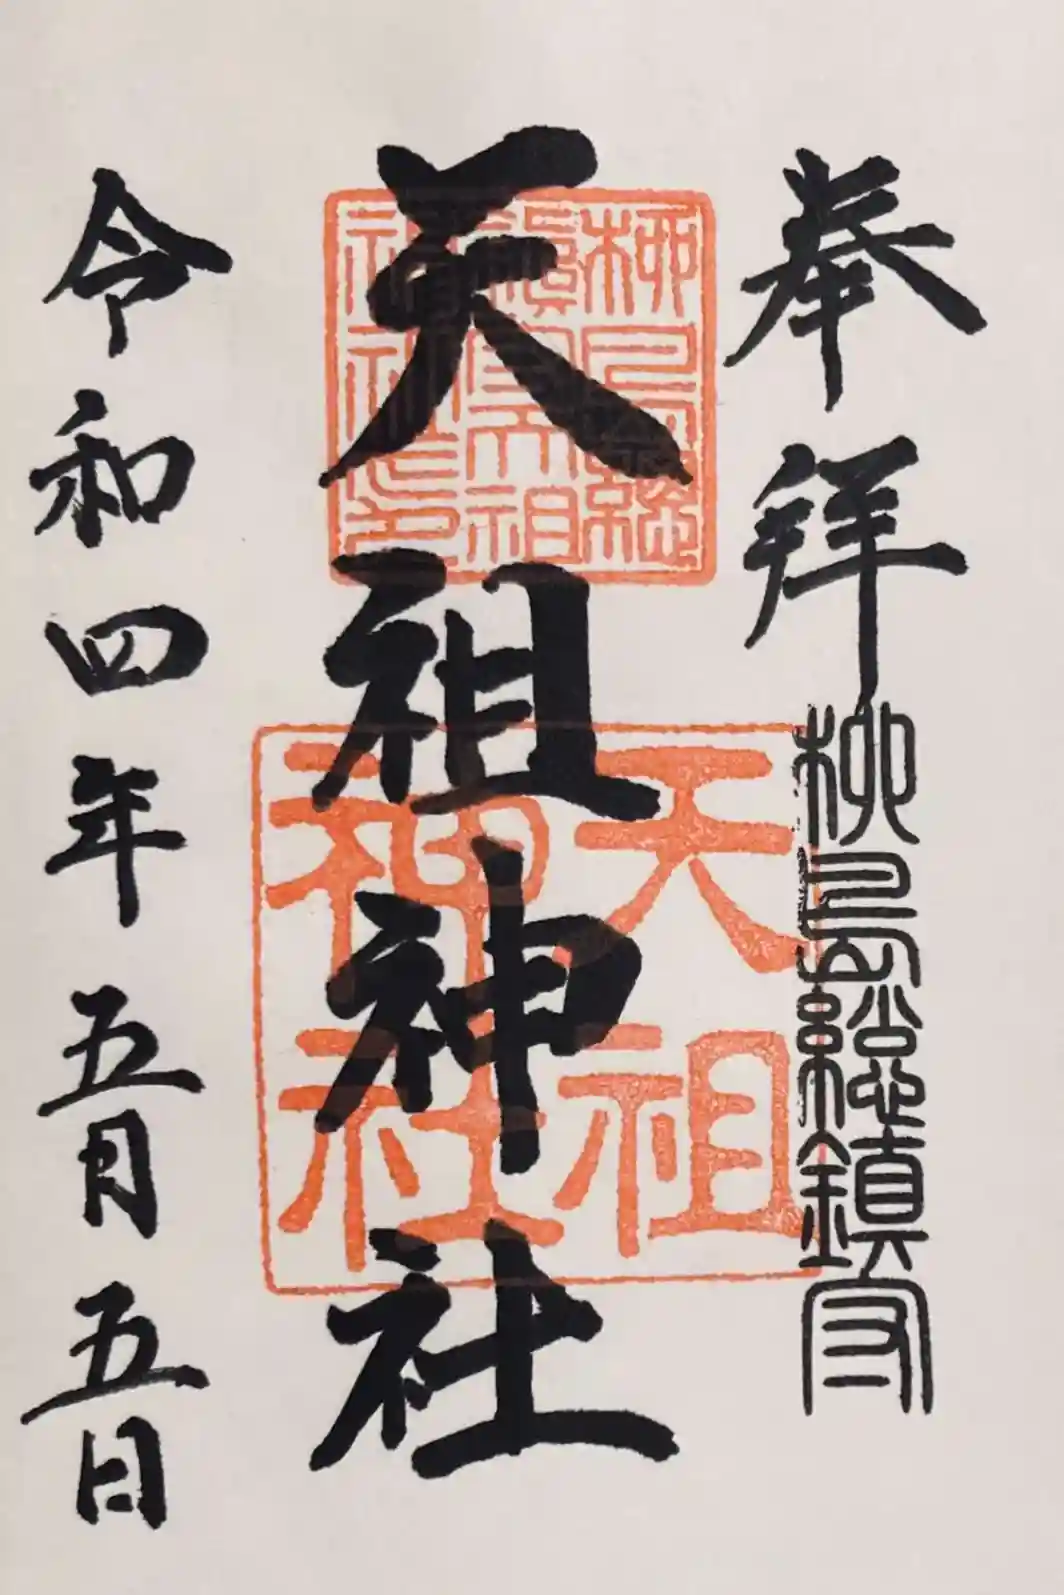 奉拝
柳島總鎮守
天祖神社
柳島總
鎮守天祖
神社之印
天祖
神社
令和四年五月五日